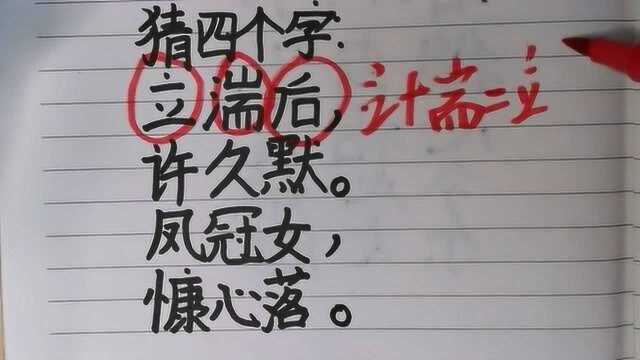 猜四个字:
立湍后,
许久默。
凤冠女,
慷心落。